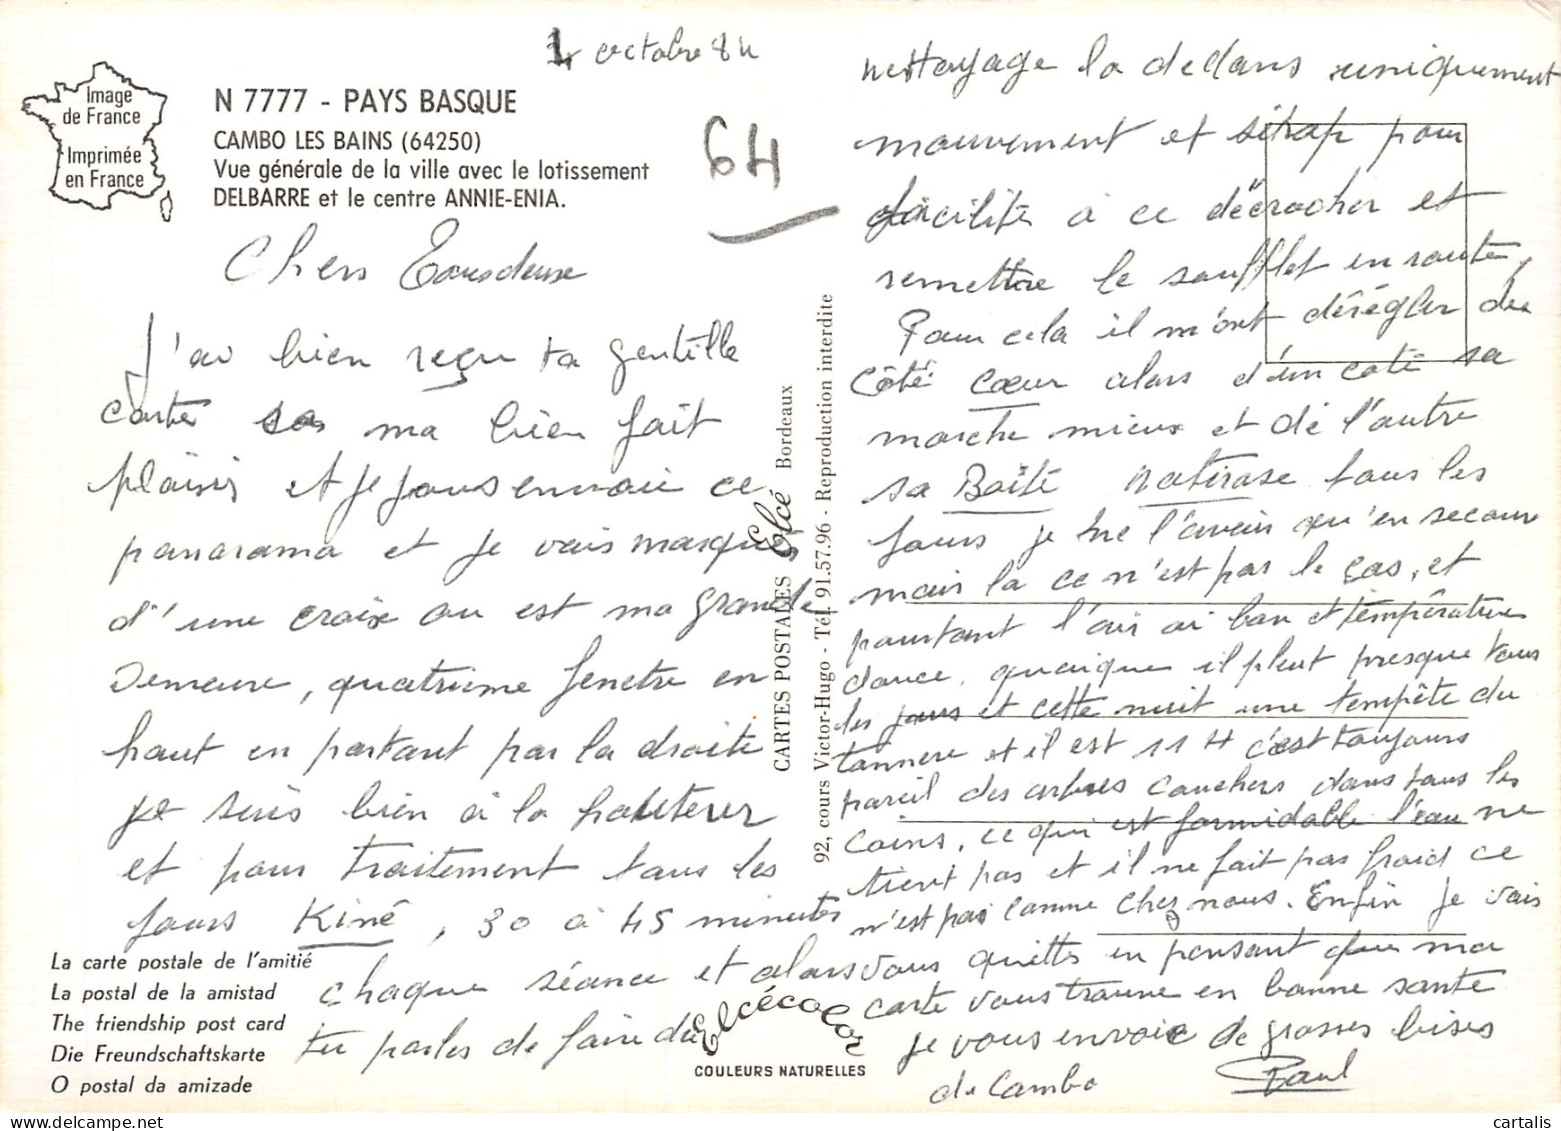 4 octobre 84
Image
de France
Imprimée
en France
N 7777 - PAYS BASQUE
CAMBO LES BAINS (64250)
Vue générale de la ville avec le lotissement
DELBARRE et le centre ANNIE-ENIA.
64
Chers Tousdeux
J'ai bien reçu ta gentille
carte sa ma bien fait
plaisir et je vous envoie ce
panorama et je vais marquer
d'une croix ou est ma grande
Demeure, quatrième fenetre en
haut en partant par la droite
je suis bien à la hauteur
et pour traitement tous les
jours Kiné, 30 à 45 minutes
chaque séance et alors
tu parles de faire du
La carte postale de l'amitié
La postal de la amistad
The friendship post card
Die Freundschaftskarte
O postal da amizade
CARTES POSTALES Elcé Bordeaux
92, cours Victor-Hugo - Tél. 91.57.96 - Reproduction interdite
Elcécolor
COULEURS NATURELLES
nettoyage la dedans uniquement
mouvement et sirop pour
facilité à ce décrocher et
remettre le soufflet en route,
Pour cela il m'ont dérégler du
côté cœur alors d'un coté sa
marche mieux et de l'autre
sa Boite tous les
jours je ne l'avais qu'en secour
mais la ce n'est pas le cas, et
pourtant l'air ai bon et température
douce, quoique il pleut presque tous
les jours et cette nuit une tempête du
tonnere et il est 11 H c'est toujours
pareil des arbres coucher dans tous les
coins, ce qui est formidable l'eau ne
tient pas et il ne fait pas froid ce
n'est pas comme chez nous. Enfin je vais
vous quitter en pensant que ma
carte vous trouve en bonne santé
je vous envoie de grosses bises
de Cambo
Paul
cartalis